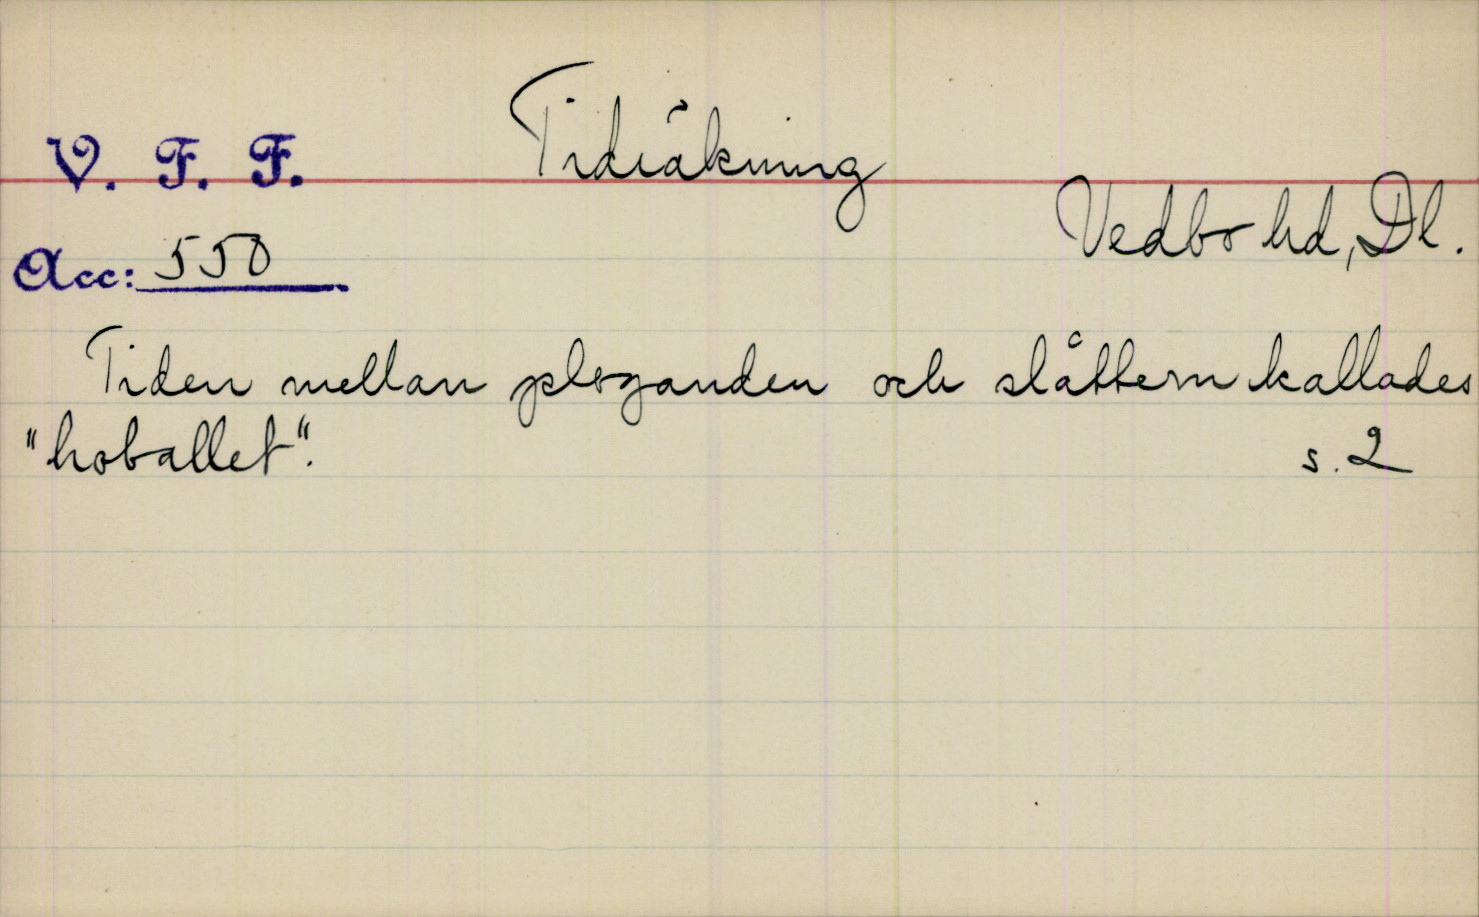 V. F. F.
Tidräkning
Vedbo hd, Dl.
Acc: 550
Tiden mellan ploganden och slåttern kallades
"hoballet".
s. 2